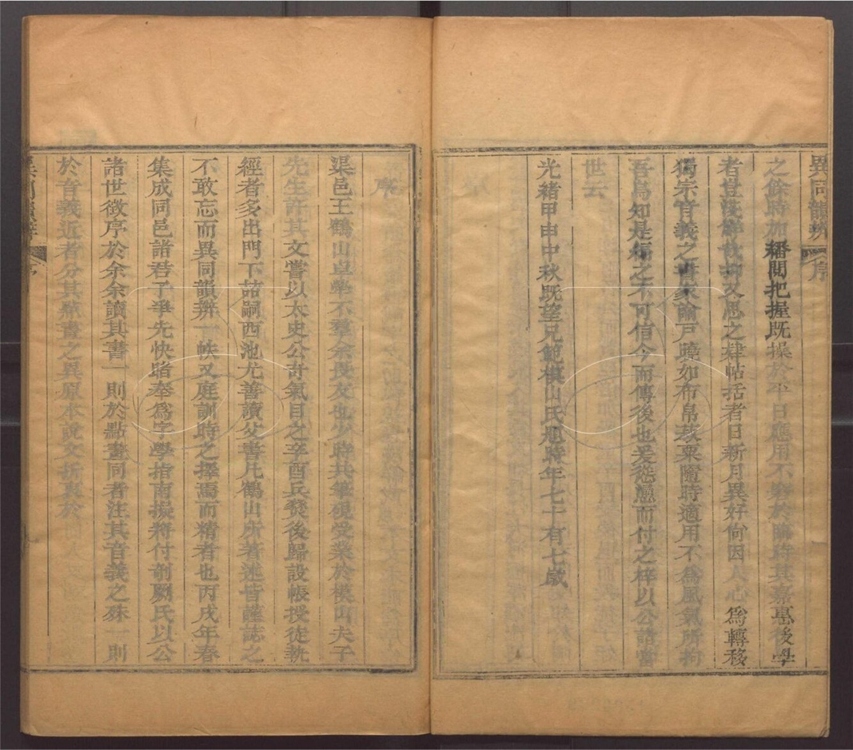 異同韻辨 序
之餘時加繙閱把握既操於平日應用不窮於臨時其嘉惠後學
者豈淺鮮哉抑又思之肄帖括者日新月異好尙因人心為轉移
獨宗音義之書家喻戶曉如布帛菽粟隨時適用不為風氣所拘
吾為知是編之不可信今而傳後也爰慫慂而付之梓以公諸當
世云
光緒甲申中秋既望兄範模山氏題時年七十有七歲
渠邑王鶴山卓犖不羣余良友也少時共筆硯受業於模山夫子
先生許其文嘗以太史公奇氣目之辛酉兵發後歸設帳授徒執
經者多出門下喆嗣西池尤善讀父書凡鶴山所著述皆謹誌之
不敢忘而異同韻辨一帙又庭訓時之擇焉而精者也丙戌年春
集成同邑諸君子爭先快睹奉為字學指南擬將付剞劂氏以公
諸世徵序於余余讀其書一則於點畫同者注其音義之殊一則
於音義近者分其點畫之異原本說文折衷於
異同韻辨 序